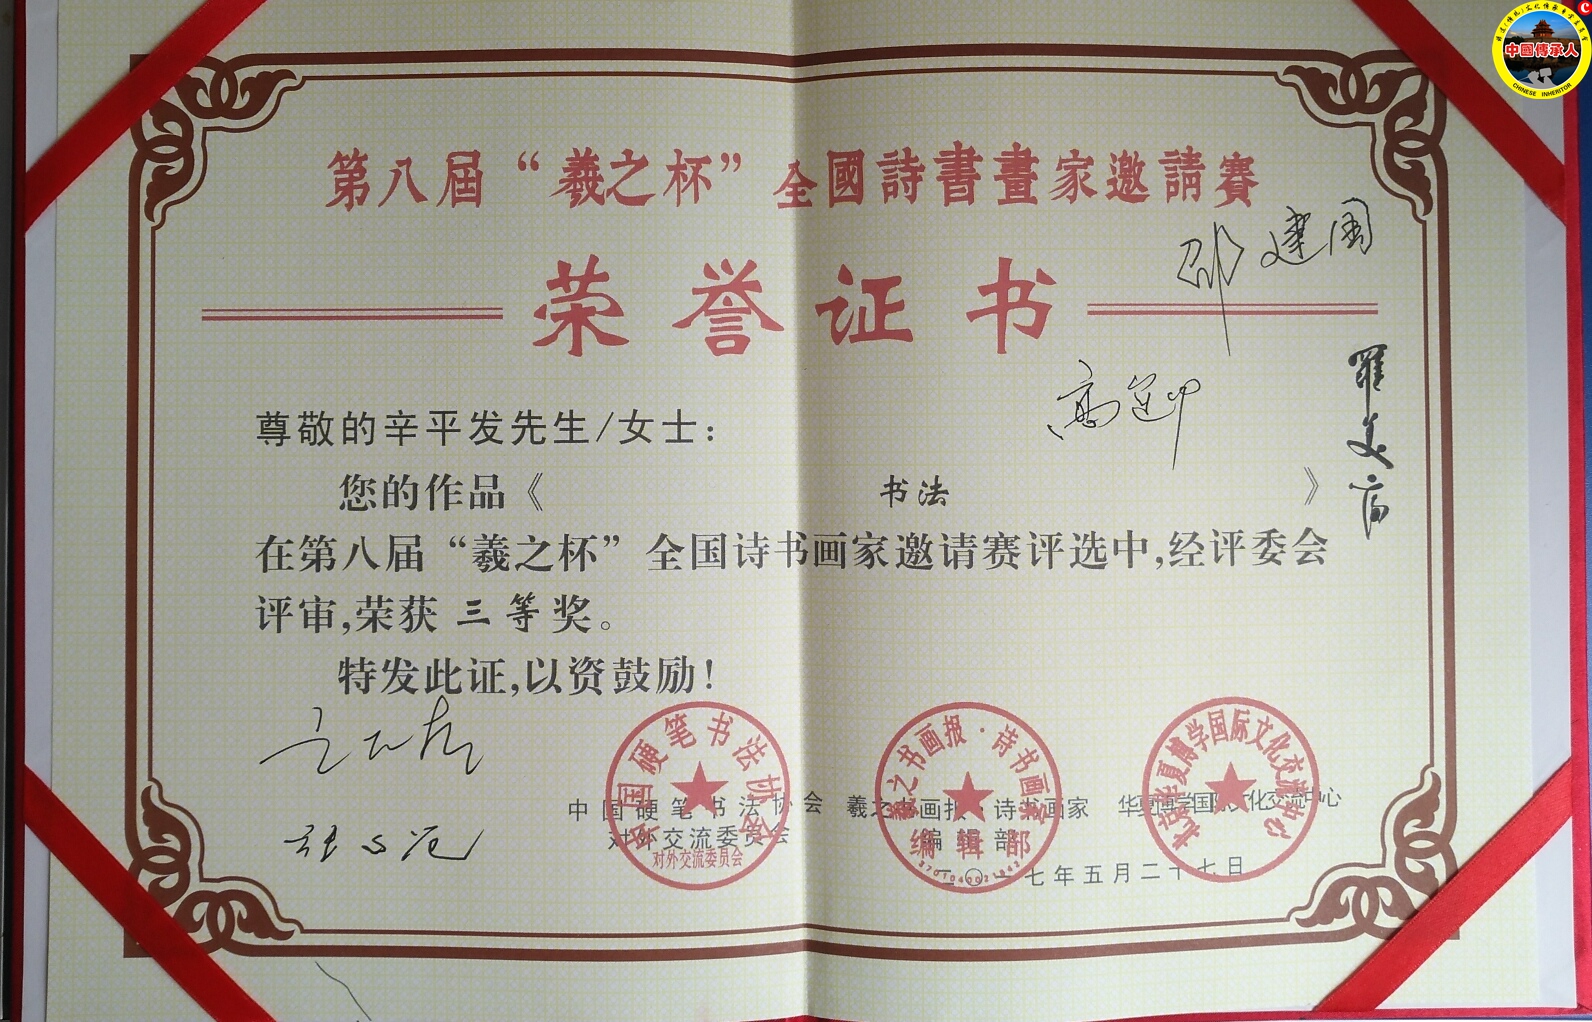 中國傳承人
CHINESE INHERITOR
第八屆“羲之杯”全國詩書畫家邀請賽
荣誉证书
邵建国
尊敬的辛平发先生/女士：
您的作品《 书法 》
在第八届“羲之杯”全国诗书画家邀请赛评选中，经评委会
评审，荣获 三等奖。
特发此证，以资鼓励！
中国硬笔书法协会 羲之书画报·诗书画家 华夏博学国际文化交流中心
对外交流委员会 编辑部
二〇一七年五月二十七日
中国硬笔书法协会
对外交流委员会
羲之书画报·诗书画家
编辑部
北京华夏博学国际文化交流中心